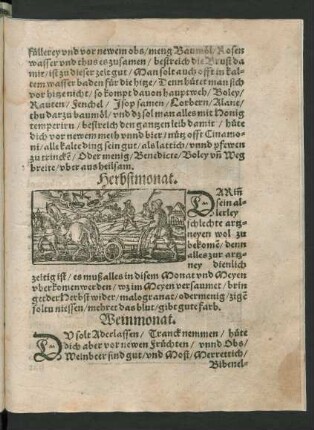 füllerey vnd vor newem obs/ meng Baumöl/ Rosen
wasser vnd thus es zusamen/ bestreich die Brust da
mit/ ist zu dieser zeit gut/ Man solt auch offt in kal=
tem wasser baden für die hitze/ Denn hütet man sich
vor hitze nicht/ so kompt dauon hauptweh/ Boley/
Rauten/ Fenchel/ Jsop samen/ Lorbern/ Alane/
thu dar zu baumöl/ vnd dz sol man alles mit Honig
temperirn/ bestreich den gantzen leib damit/ hüte
dich vor newem meth vnnd bier/ nütz offt Cinamo=
ni/ alle kalte ding sein gut/ als lattich/ vnnd ysrwen
zu trincken/ Oder menig/ Benedicte/ Boley vñ Weg
breite/ vber aus heilsam.
Herbstmonat.
DARiñ
sein al=
lerley
schlechte artz=
neyen wol zu
bekomẽ/ denn
alles zur artz=
ney dienlich
zeitig ist/ es muß alles in disem Monat vnd Meyen
vberkomen werden/ wz im Meyen versaumet/ brin
get der Herbst wider/ malogranat/ odermenig/ zigẽ
solt u niessen/ mehret das blut/ gibt gute farb.
Weinmonat.
DV solt Aderlassen/ Tranck nemmen/ hüte
dich aber vor newen Früchten/ vnnd Obs/
Weinbeer sind gut/ vnd Most/ Merrettich/
Bibenel=